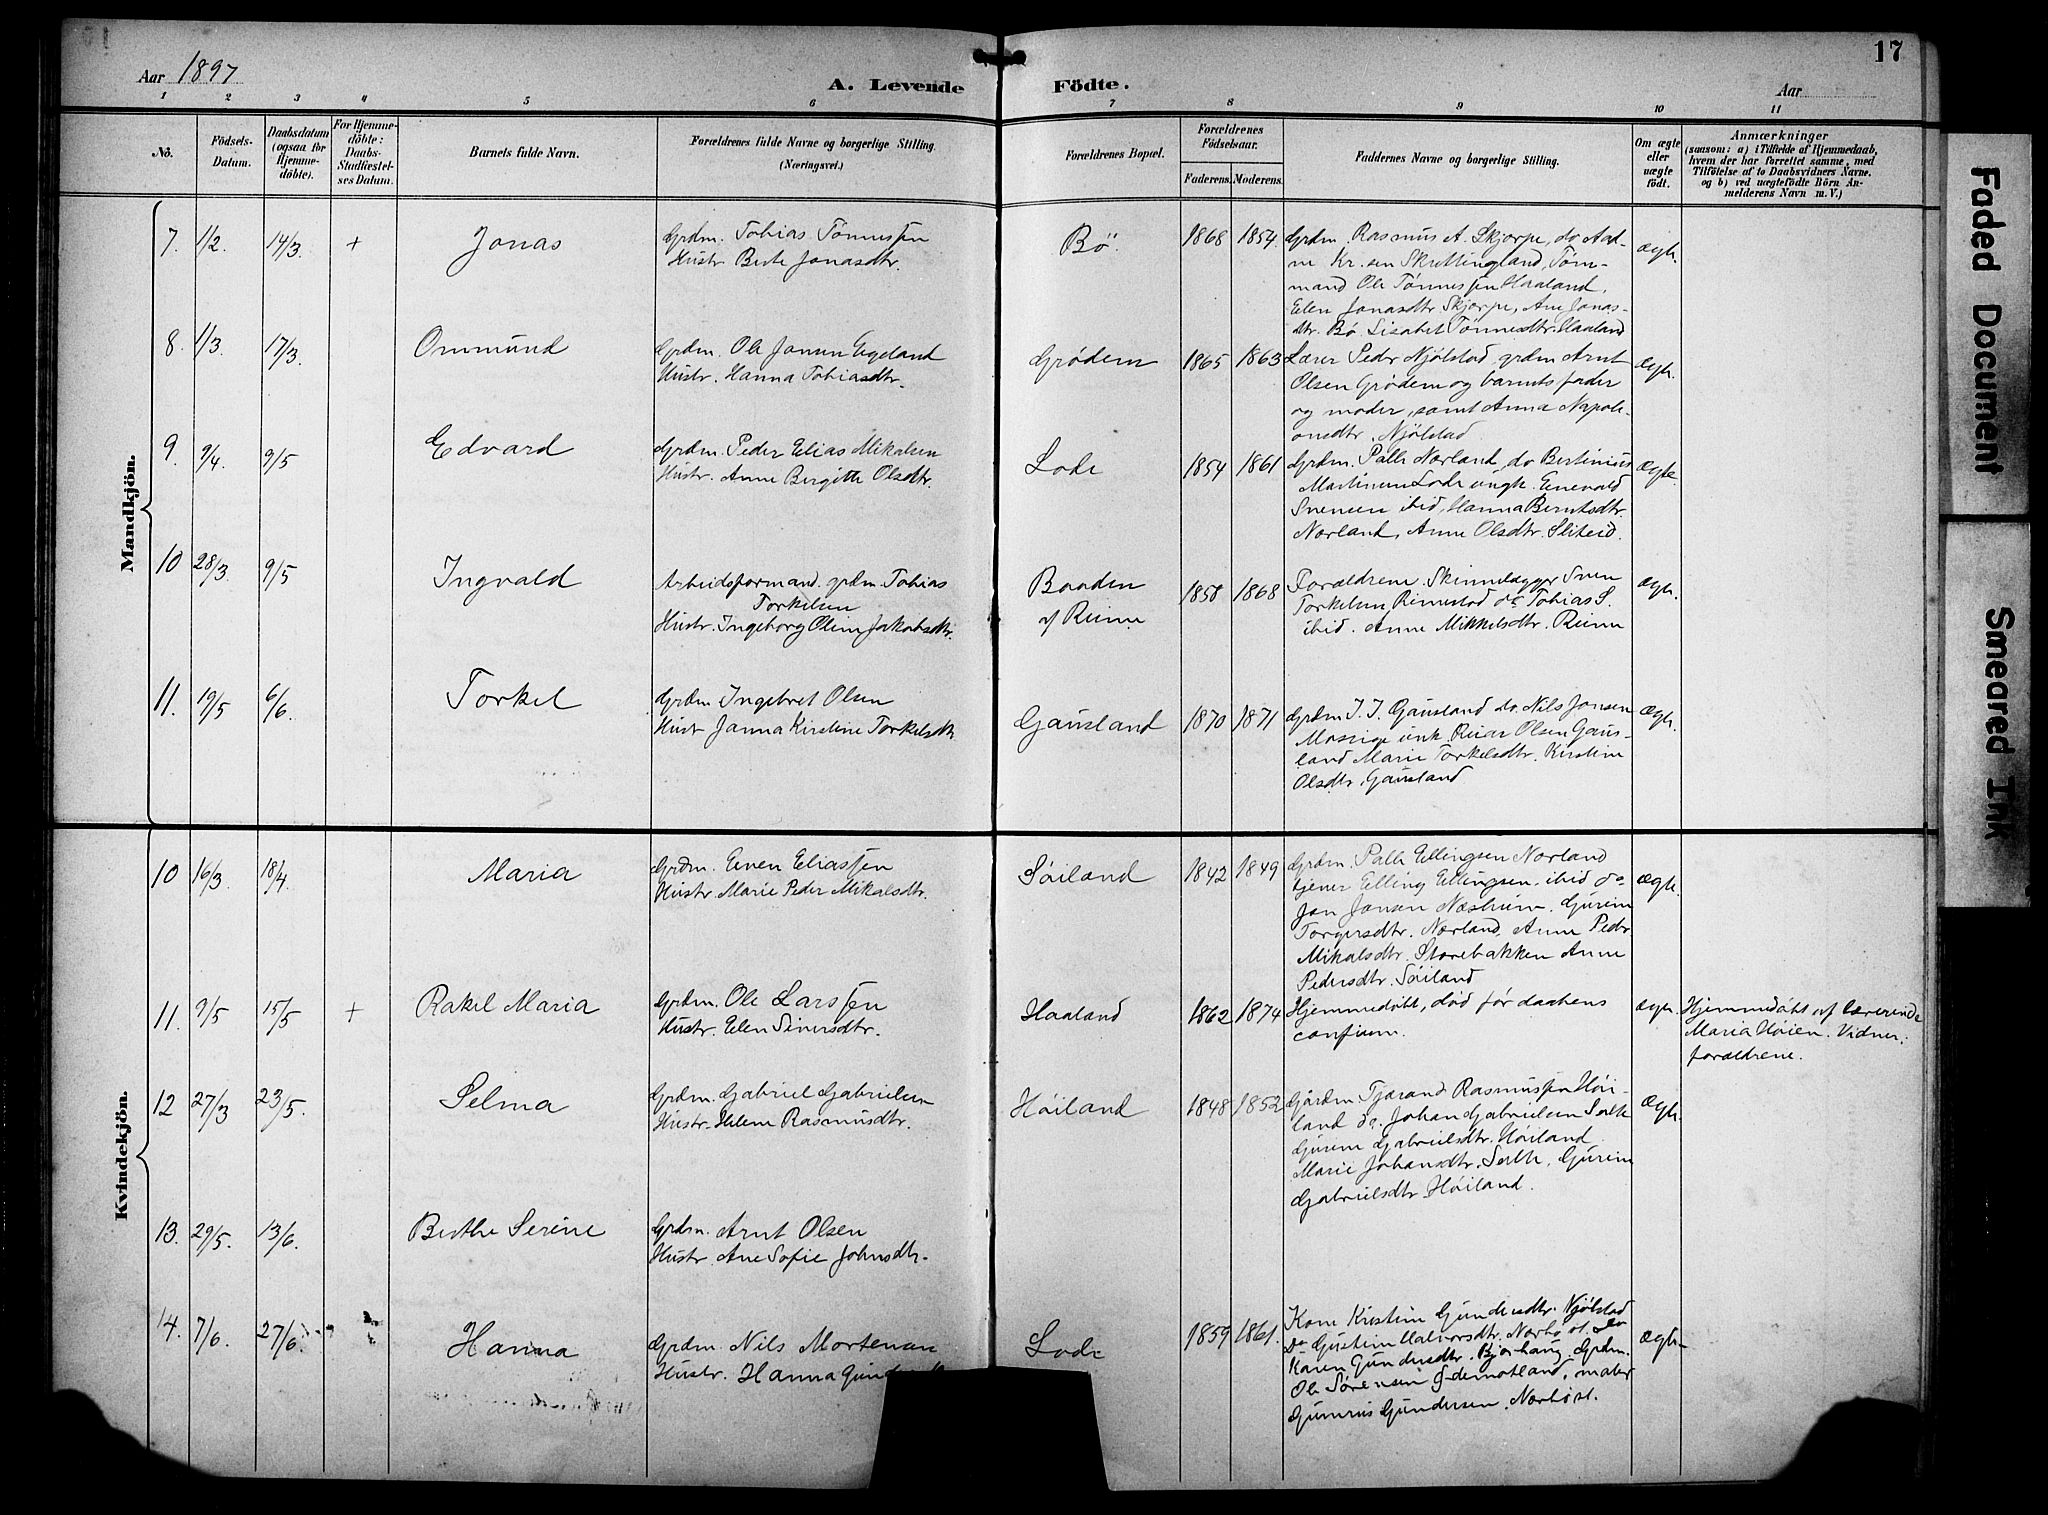 17
Aar 1897
A. Levende Födte.
Aar
1 2 3 4 5 6 7 8 9 10 11
No.
Födsels-
Datum.
Daabsdatum
(ogsaa for
Hjemme-
döbte).
For Hjemme-
döbte:
Daabs-
Stadfæstel-
ses Datum.
Barnets fulde Navn.
Forældrenes fulde Navne og borgerlige Stilling.
(Næringsvei.)
Forældrenes Bopæl.
Forældrenes
Födselsaar.
Faderens. Moderens.
Faddernes Navne og borgerlige Stilling.
Om ægte
eller
uægte
födt.
Anmærkninger
(saasom: a) i Tilfælde af Hjemmedaab,
hvem der har forrettet samme, med
Tilföielse af to Daabsvidners Navne,
og b) ved uægtefödte Börn An-
melderens Navn m. V.)
Mandkjön.
7. 1/2. 14/3 + Jonas
Grdm. Tobias Tønnessen
Hustr Berte Jonasdtr.
Bø. 1868 1854
Grdm. Rasmus A. Skjorpe, do Aad-
ne Kr.sen Skrettingland, Tøm-
mand Ole Tønnessen Haaland,
Elen Jonasdtr Skjorpe, Ane Jonas-
dtr. Bø. Lisabet Tønnesdtr. Haaland
ægte.
8. 1/3. 17/3. Ommund
Grdm. Ole Jonsen Egeland
Hustr. Hanna Tobiasdtr.
Grødem 1865 1863
Lærer Peder Njølstad, grdm Arnt
Olsen Grødem og barnets fader
og moder, samt Anna Napole-
onsdtr. Njølstad
ægte.
9. 9/4. 9/5 Edvard
Grdm. Peder Elias Mikalsen
Hustr. Anne Birgitte Olsdtr.
Lode 1854 1861
Grdm. Palle Nærland, do Bertinius
Martinsen Lode ungk. Enevald
Svensen ibid, Hanna Berntsdtr.
Nærland, Anne Olsdtr. Sliteid.
Ægte.
10 28/3. 9/5 Ingvald
Arbeidsformand. grdm. Tobias
Torkelsen
Hustr. Ingeborg Oline Jakobsdtr.
Baaden
af Reime
1858 1868
Forældrene. Skinnelægger Sven
Torkelsen, Rimestad do Tobias S.
ibid. Anne Mikkelsdtr. Reime
Ægte.
11. 19/5 6/6. Torkel
Grdm Ingebret Olsen
Hust Janna Kirstine Torkelsdtr.
Gausland 1870 1871
Grdm I. I. Gausland do. Nils Jonsen
Mossige unk. Reiar Olsen Gaus-
land Marie Torkelsdtr. Kirstine
Olsdtr. Gausland
Ægte.
Kvindekjön.
10 16/3. 18/4. Maria
Grdm. Even Eliassen
Hustr. Marie Peder Mikalsdtr.
Søiland 1842 1849
Grdm. Palle Ellingsen Nærland
tjener Elling Ellingsen, ibid do
Jon Jonsen Næsheim. Gurine
Torgersdtr. Nærland, Anne Peder
Mikalsdtr. Storebakken Anne
Pedersdtr. Søiland
ægte.
11. 9/5 15/5 + Rakel Maria
Grdm. Ole Larssen
Hustr. Elen Siversdtr.
Haaland 1862 1874
Hjemmedøbt, død før daabens
confirm.
ægte.
Hjemmedøbt af lærerinde
Maria Høien. Vidner:
forældrene.
12 27/3 23/5. Selma
Grdm. Gabriel Gabrielsen
Hustr. Helene Rasmusdtr.
Høiland 1848 1852
Gårdm. Tjærand Rasmussen Høi-
land do. Johan Gabrielsen Salte
Gurine Gabrielsdtr. Høiland
Marie Johansdtr. Salte, Gurine
Gabrielsdtr. Høiland.
Ægte.
13. 29/5. 13/6. Berthe Serine
Grdm. Arnt Olsen
Hustr Ane Sofie Johnsdtr.
14. 7/6. 27/6. Hanna
Grdm. Nils Mortensen
Hustr. Hanna
Lode 1859 1861.
Kone Kirstine Gundersdtr. Njølstad
Do Gustine Halvorsdtr. Nærbø st. Do
Karen Gundersdtr. Bjorhaug. Grdm.
Ole Sørensen Gdemotland, maler
Gumrius Gundersen. Nærbø st.
Ægte
Faded Document
Smeared Ink